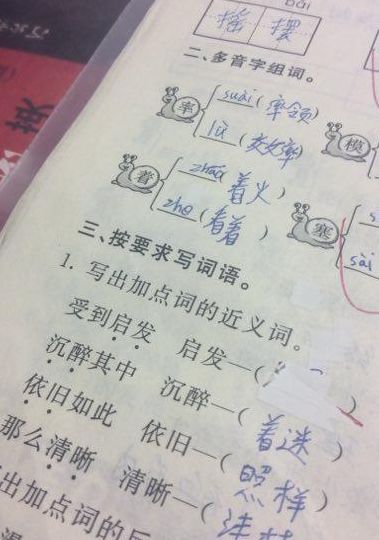 bǎi
摇 摆
二、多音字组词。
率 shuài(率领)
lǜ(效率)
模
着 zháo(着火)
zhe(看着)
塞
sài
三、按要求写词语。
1. 写出加点词的近义词。
受到启发 启发—(
沉醉其中 沉醉—(着迷)
依旧如此 依旧—(照样)
那么清晰 清晰—(
出加点词的反